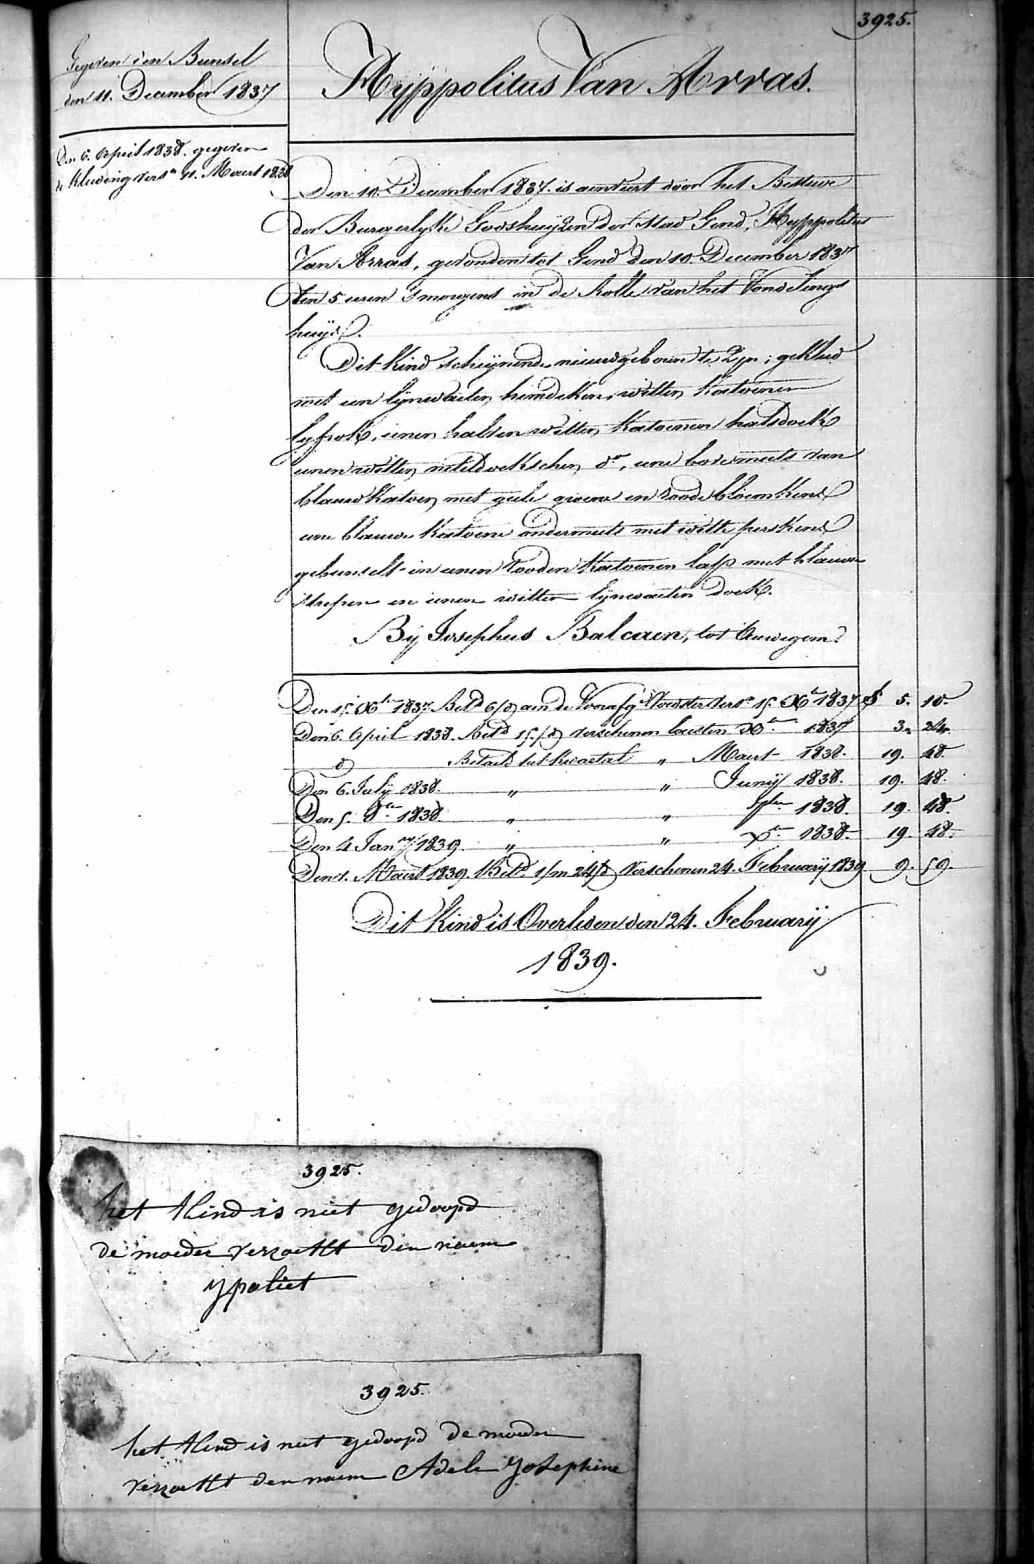 3925.
Gegeven den Bunsel
den 11. December 1837
Den 6. April 1838. gegeven
de Kleeding versn 11. Maert 1838
Hÿppolitus Van Arras.
Den 10. December 1837. is aenveert door het Bestuer
der Burgerlyke Godshuyzen der Stad Gend, Hyppolitus
Van Arras, gevonden tot Gend den 10. December 1837
ten 5 uren 's morgens in de Rolle van het Vondelings
huys.
Dit kind schynende nieuwgeboren te zyn; gekleed
met een lynwaeten hemdeken, witten katoenen
lyfrok, eenen halven witten katoenen halsdoek
eenen witten neteldoekschen do, eene bovenmuts van
blauw katoen met geele groene en roode bloemkens
eene blauwe katoene ondermuts met witte perskens
gebunselt in eenen rooden katoenen lap met blauwe
strepen en eenen witten lynwaeten doek.
Bÿ Josephus Balcaen, tot Auwegem
Den 15. Xber 1837 Betd 6/d aen de Voorafge Voedster versn 15. Xber 1837 f 5. 10.
Den 6. April 1838. Betd 15/d verschenen laesten Xber 1837 3. 24.
do Betaeld het kwartael " Maert 1838. 19. 48.
Den 6. July 1838. " " Junÿ 1838. 19. 48.
Den 5. 8ber 1838. " " 7ber 1838. 19. 48.
Den 4 Jany 1839. " " Xber 1838. 19. 48.
Den 1. Maert 1839. Betd 1/m 24/d Verschenen 24. Februarÿ 1839. 9. 59.
Dit Kind is Overleden den 24. Februarÿ
1839.
3925.
het Kind is niet gedoopd
de moeder verzoekt den naem
ypoliet
3925.
het Kind is niet gedoopd de moeder
verzoekt den naem Adele Josephine